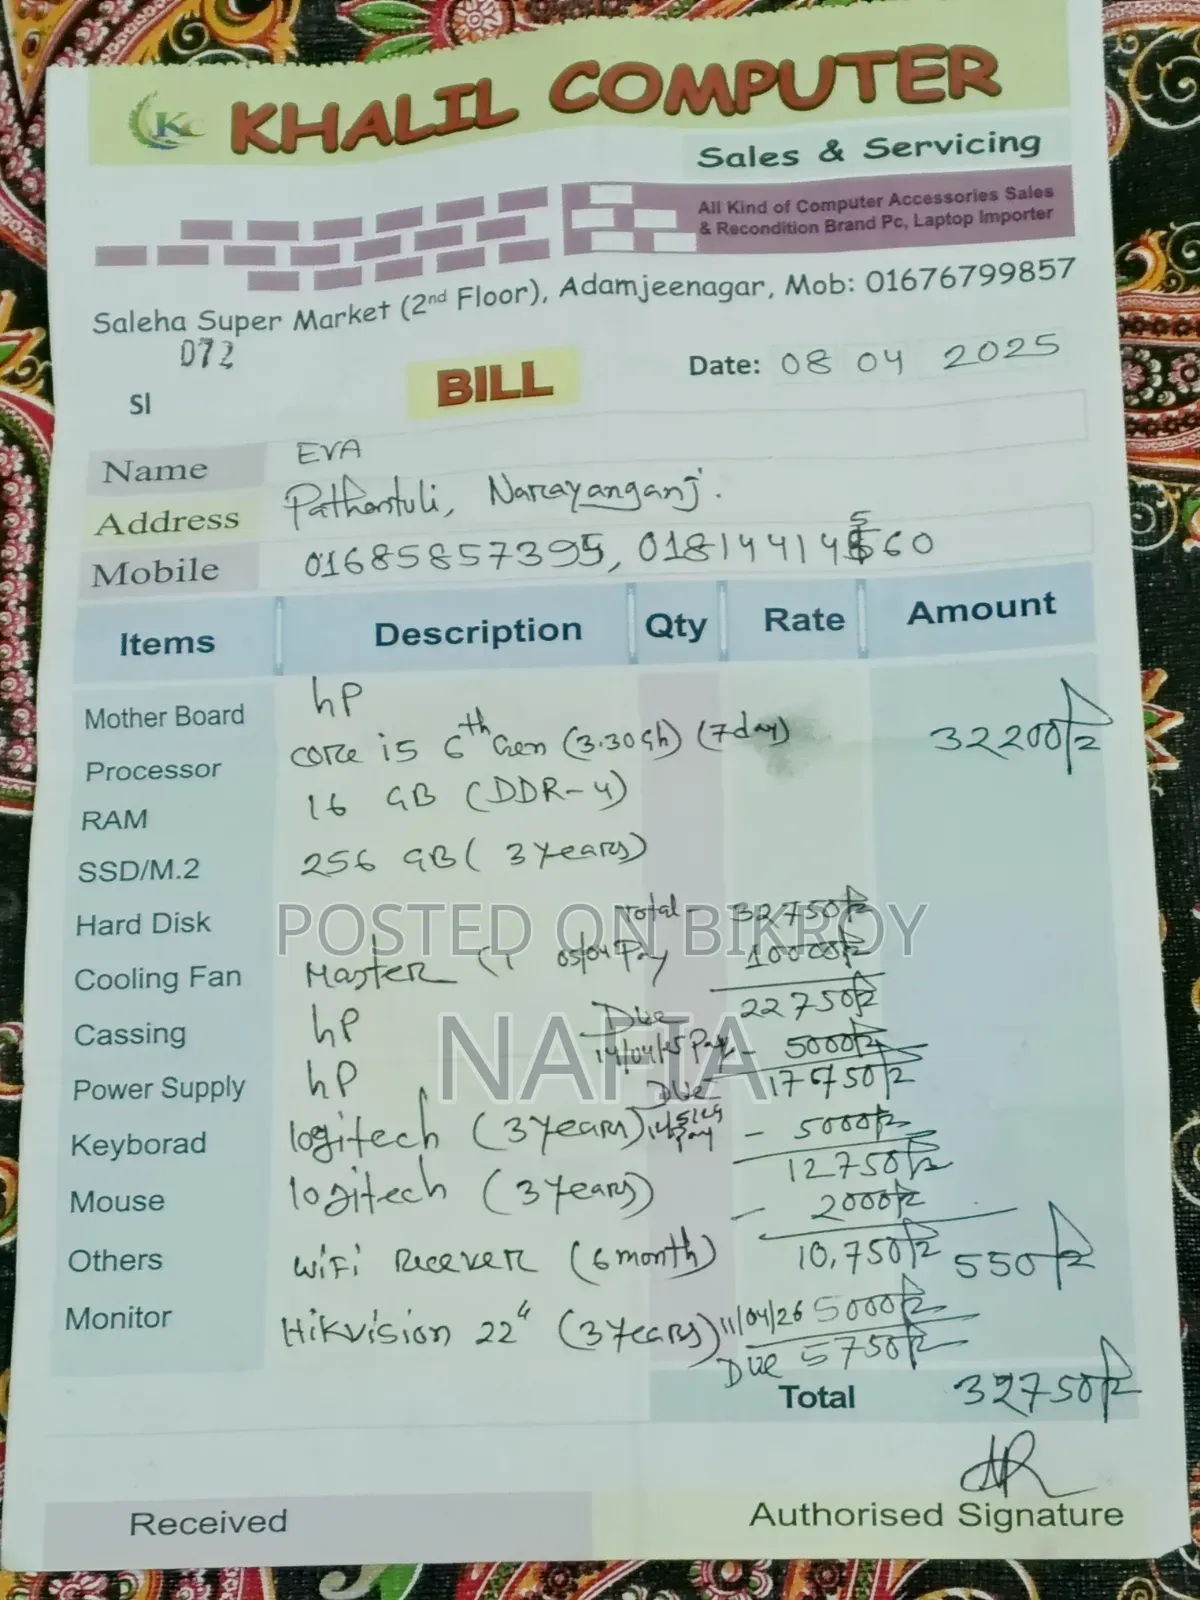 KC KHALIL COMPUTER
Sales & Servicing
All Kind of Computer Accessories Sales
& Recondition Brand Pc, Laptop Importer
Saleha Super Market (2nd Floor), Adamjeenagar, Mob: 01676799857
072
Sl
BILL
Date: 08 04 2025
Name EVA
Address Pathantuli, Narayanganj.
Mobile 01685857395, 01814414560
Items Description Qty Rate Amount
Mother Board hp
Processor core i5 6th Gen (3.30Gh) (7day) 32200/=
RAM 16 GB (DDR-4)
SSD/M.2 256 GB (3 years)
Hard Disk Total - 32750/=
Cooling Fan Master 05/04 Pay 10000/=
Cassing hp Due 22750/=
14/04/25 Pay - 5000/=
Power Supply hp Due 17750/=
Keyborad logitech (3 years) Pay - 5000/=
12750/=
Mouse logitech (3 years) - 2000/=
Others WiFi Recever (6 month) 10,750/= 550/=
Monitor Hikvision 22" (3 years) 11/04/26 5000/=
Due 5750/=
Total 32750/=
Received
Authorised Signature
POSTED ON BIKROY
NAFIA